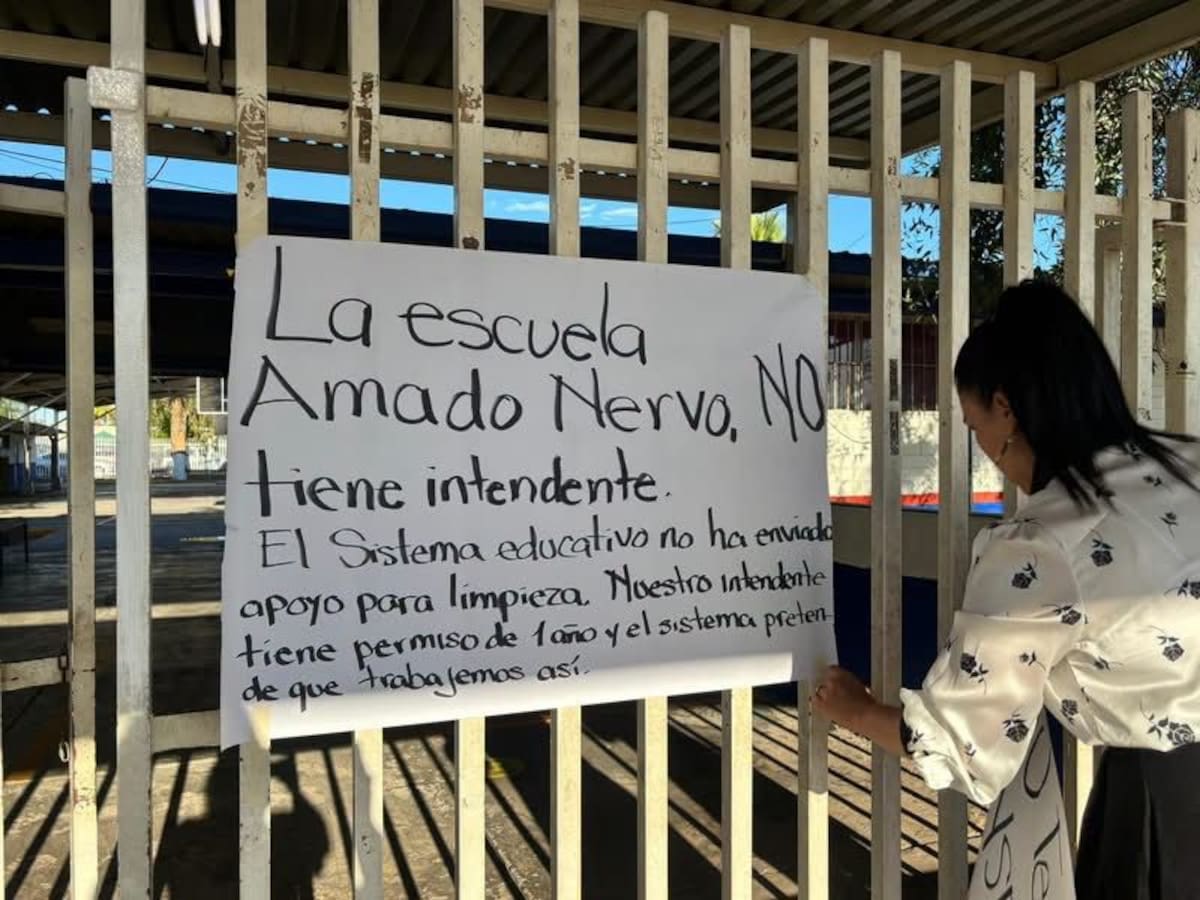 La escuela
Amado Nervo, NO
tiene intendente.
El Sistema educativo no ha enviado
apoyo para limpieza. Nuestro intendente
tiene permiso de 1 año y el sistema preten-
de que trabajemos así.